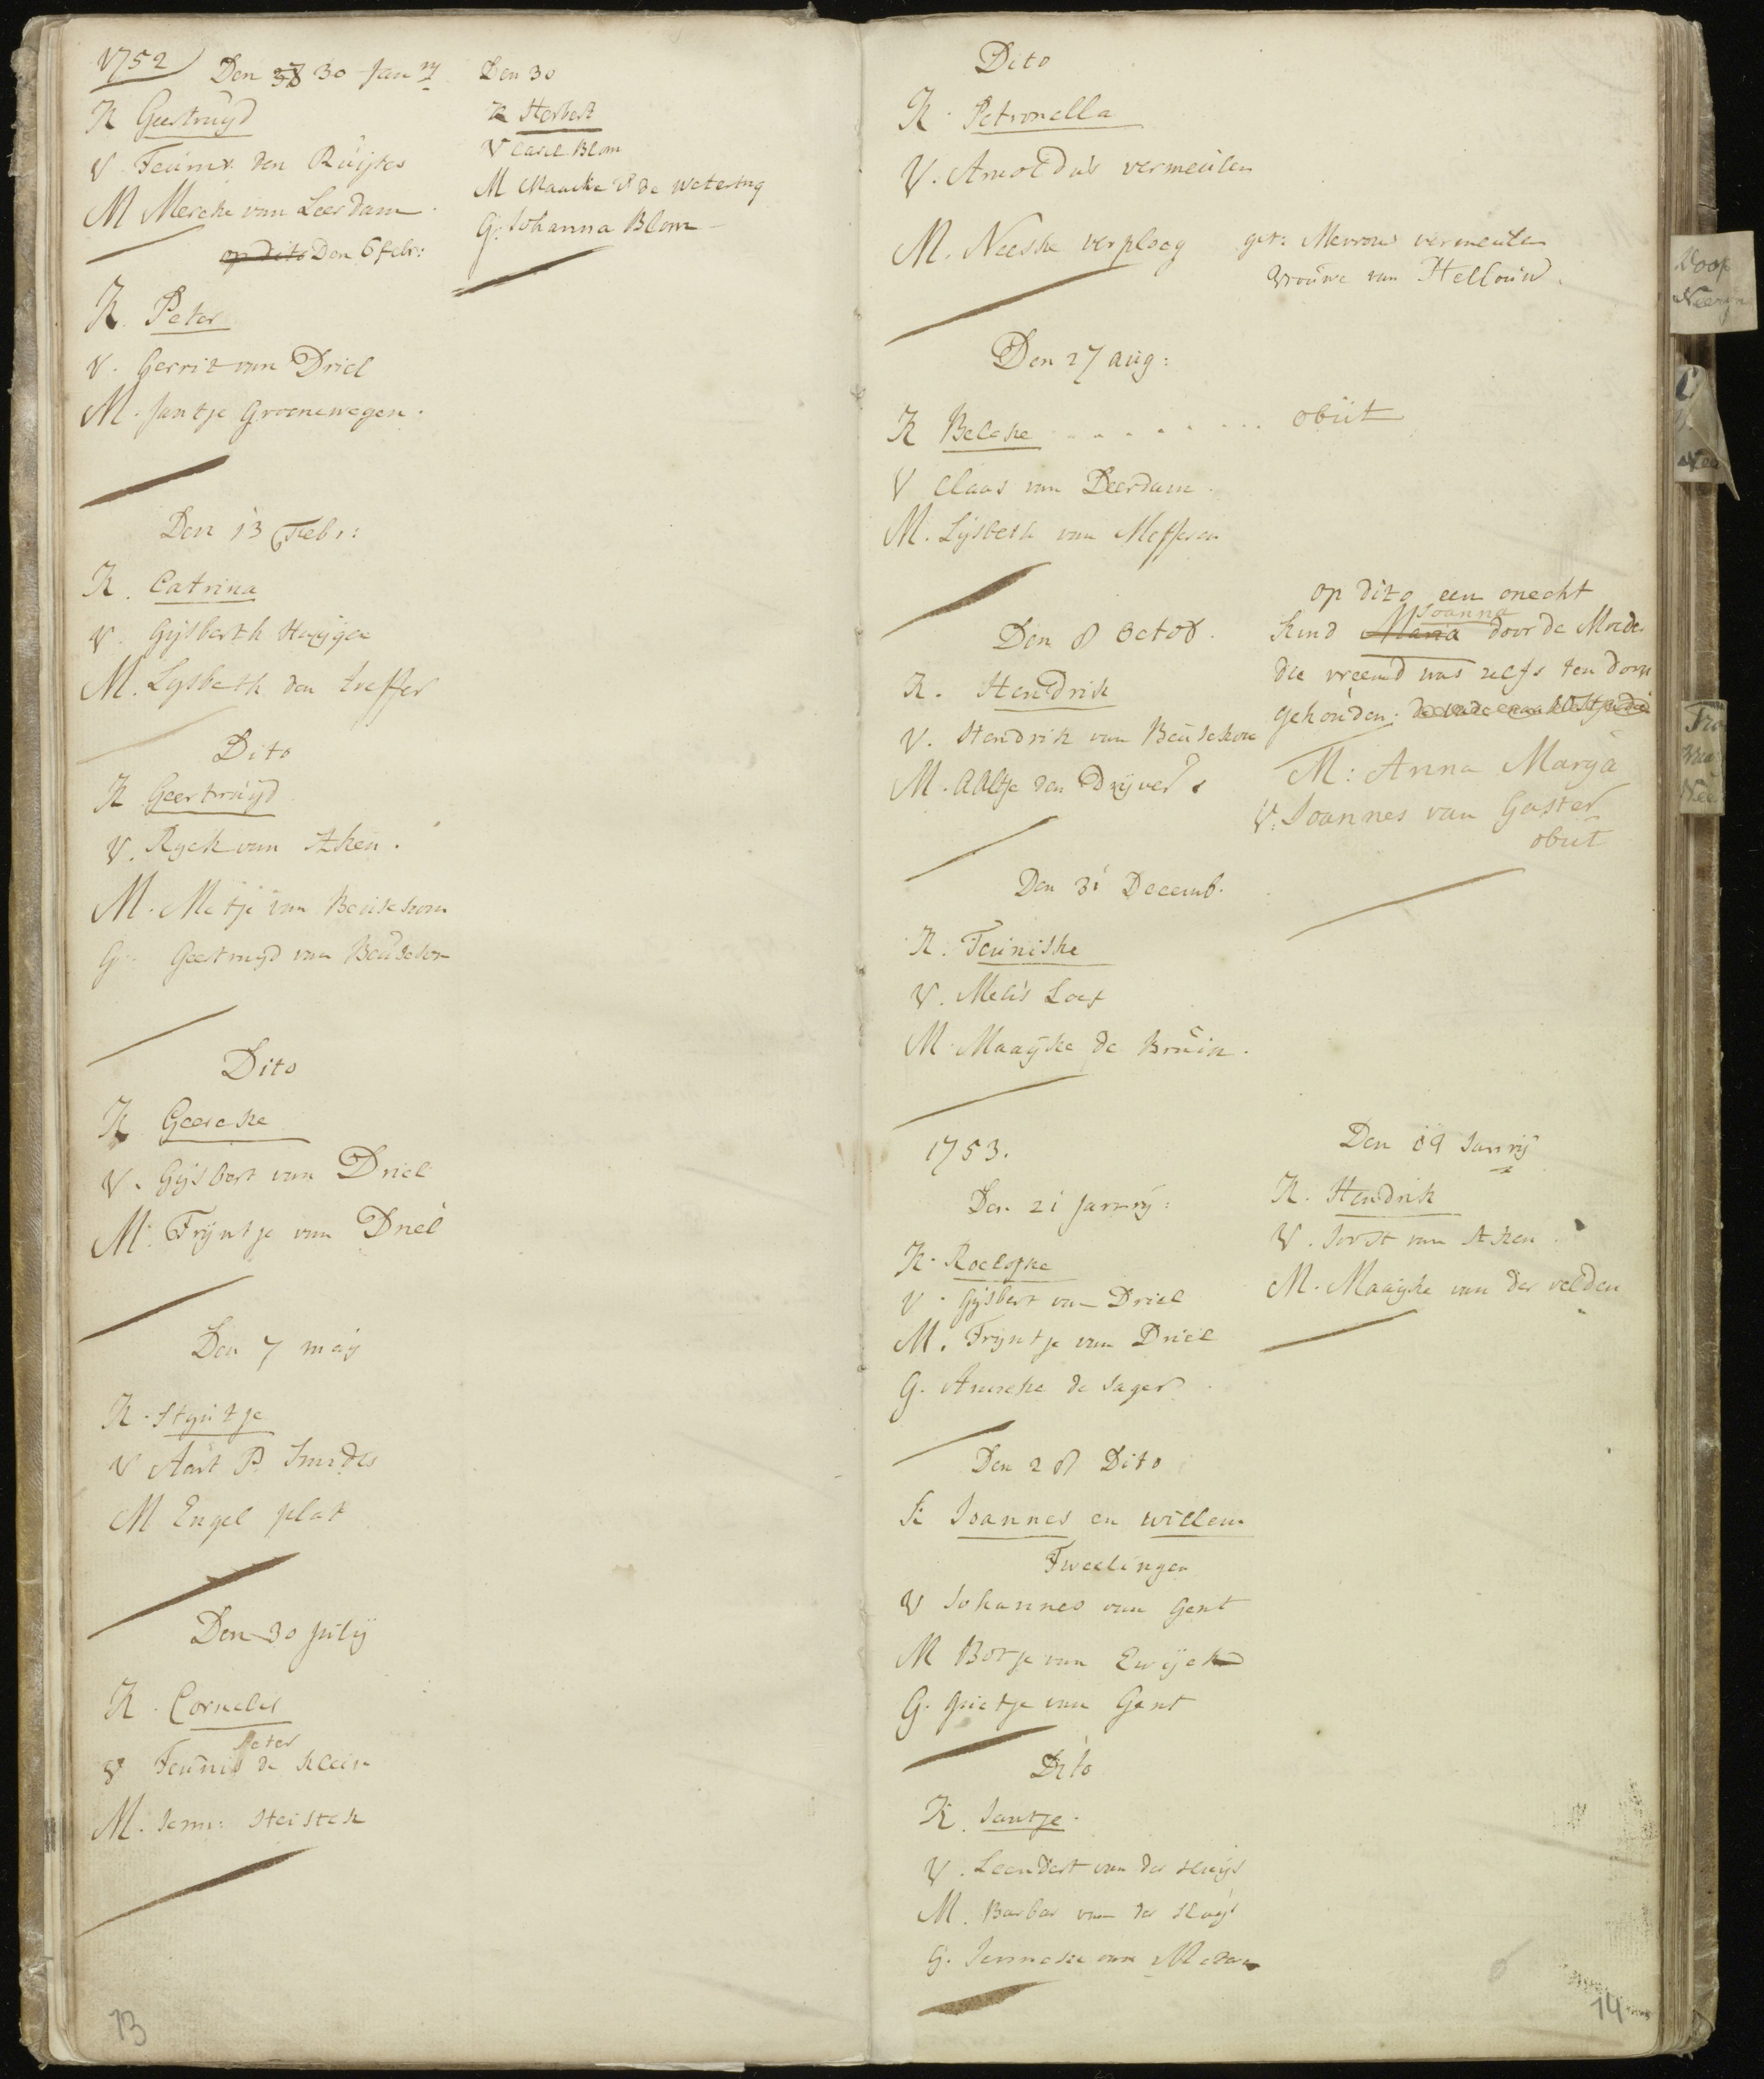 1752
Den 30 Janry
K Geertruyd
V. Teunis den Ruijter
M Merike van Leerdam
Den 30
K Herbert
V Carel Blom
M Maaike v de Wetering
G. Johanna Blom
op dito Den 6 febr:
K. Peter
V. Gerrit van Driel
M. Jantje Groenewegen.
Den 13 Febr:
K. Catrina
V. Gijsberth
M. Lijsbeth den Treffer
Dito
K Geertruijd
V. Ryck van Aken.
M. Metje van Beusekom
G. Geertruyd van Beusekom
Dito
K Geereke
V. Gijsbert van Driel
M. Trijntje van Driel
Den 7 maij
K. Styntje
V Aart P. Smids
M Engel plat
Den 30 Julij
K. Cornelis
Peter
V Teunis de Klein
M. Jenn:
13
Dito
K. Petronella
V. Arnoldus vermeulen
M. Neeske verploeg
get: Mevrow vermeulen
vrouwe van Hellouw.
Den 27 aug:
K Beleke . . . . . . . . obiit
V Claas van Leerdam.
M. Lijsbeth van Mefferen
Den 8 Octob.
K. Hendrik
V. Hendrik van Beusekom
M. Aaltje den Drijver
op dito een onecht
Joanna
kind Maria door de Moeder
die vreemd was zelfs ten doop
gehouden:
M: Anna Marya
V. Joannes van Gaster
obiit
Den 31 Decemb.
K. Teuniske
V. Melis Loef
M Maayke de Bruin.
1753.
Den 21 Janrij:
K. Roelofke
V. Gijsbert van Driel
M. Trijntje van Driel
G. Anneke de Jager
Den 19 Janrij
K. Hendrik
V. Joost van Aken.
M. Maaijke van der velden
Den 28 Dito
K Joannes en Willem
Tweelingen
V Johannes van Gent
M Botje van Ewijck
G. Grietje van Gent
Dito
K. Jantje.
V. Leendert van der sluijs
M. Barbar van der Sluijs
G. Jenneke van
14